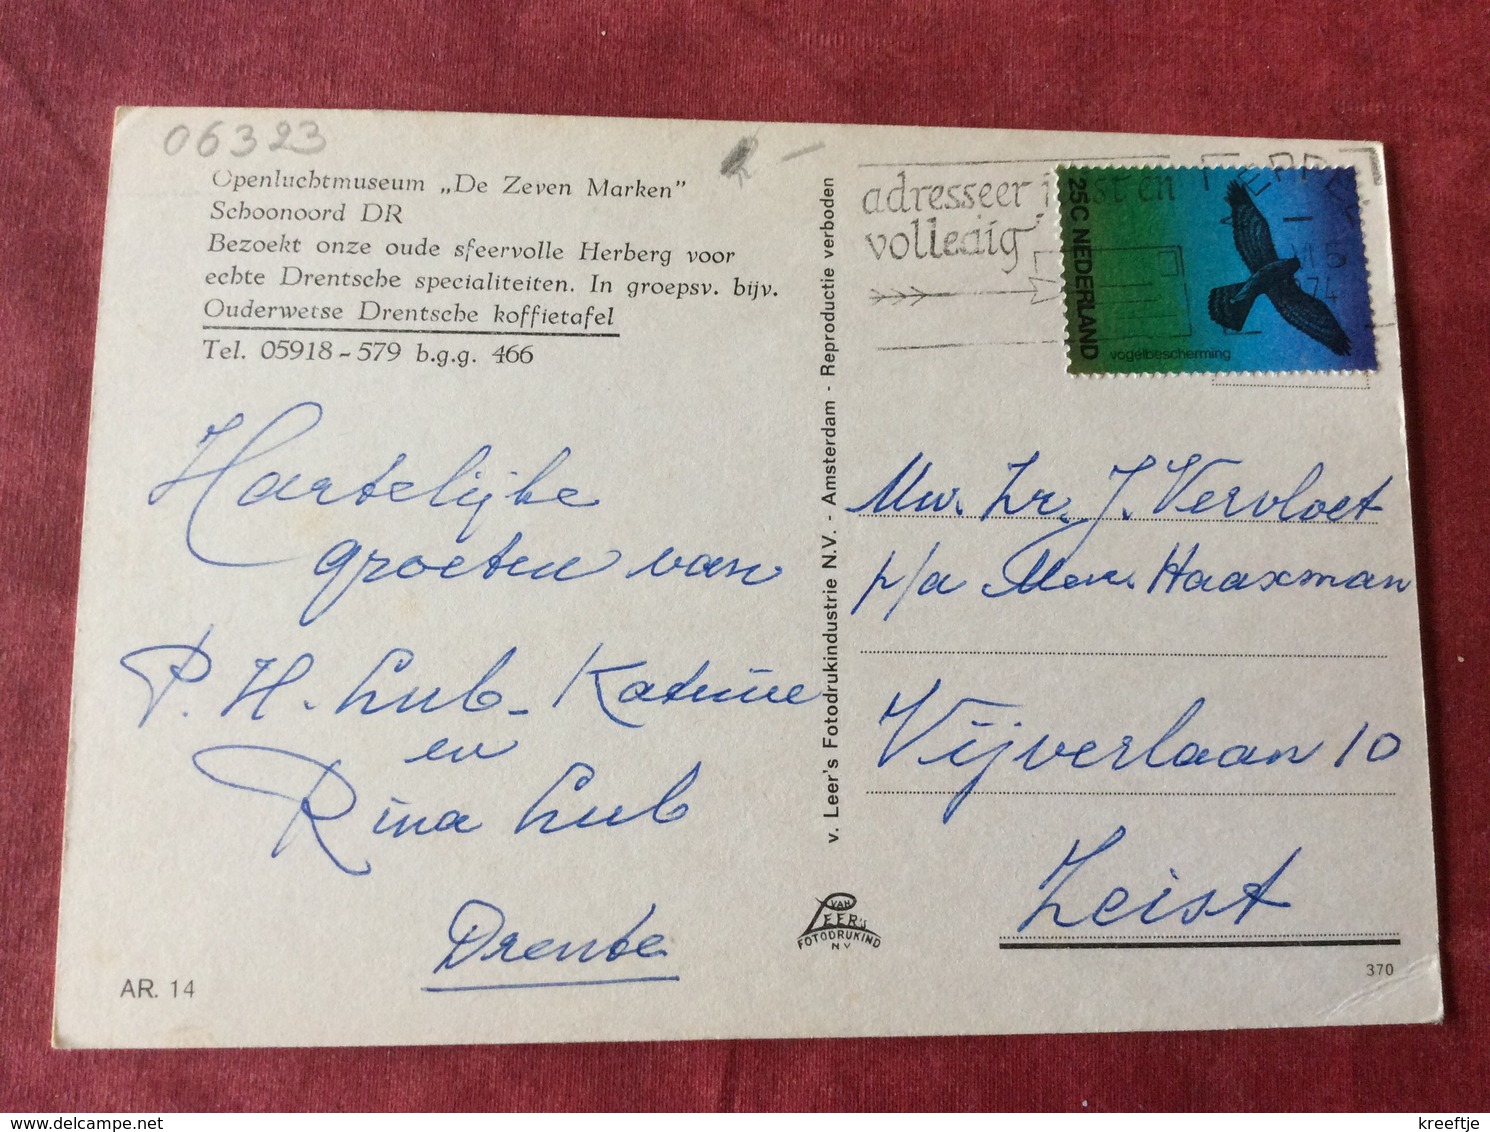 06323
Openluchtmuseum „De Zeven Marken”
Schoonoord DR
Bezoekt onze oude sfeervolle Herberg voor
echte Drentsche specialiteiten. In groepsv. bijv.
Ouderwetse Drentsche koffietafel
Tel. 05918-579 b.g.g. 466
Hartelijke
groeten van
P. H. Lub-Katuine
en
Rina Lub
Drente
AR. 14
v. Leer's Fotodrukindustrie N.V. - Amsterdam - Reproductie verboden
VAN
LEER's
FOTODRUKIND
N.V.
adresseer juist en
volledig
MEPPEL
5
1974
25C NEDERLAND
vogelbescherming
Mw. Zr. J. Vervloet
p/a Mevr. Haaxman
Vijverlaan 10
Zeist
370
kreeftje